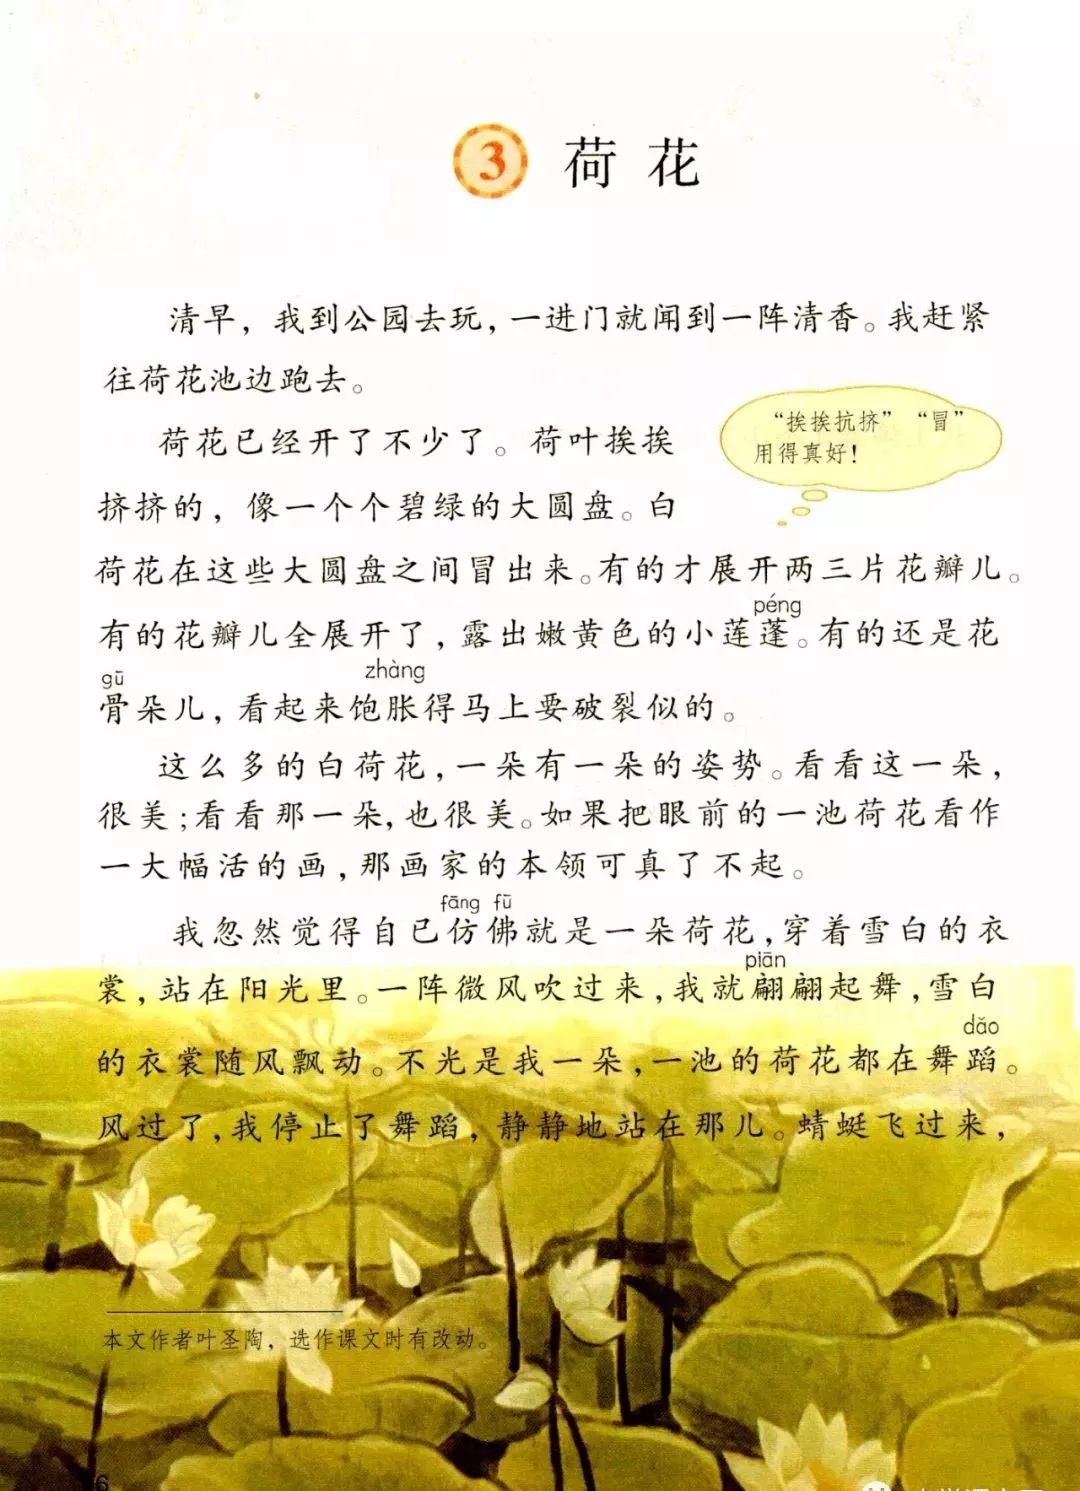 3 荷花
清早，我到公园去玩，一进门就闻到一阵清香。我赶紧
往荷花池边跑去。
荷花已经开了不少了。荷叶挨挨
挤挤的，像一个个碧绿的大圆盘。白
“挨挨抗挤”“冒”
用得真好！
荷花在这些大圆盘之间冒出来。有的才展开两三片花瓣儿。
péng
有的花瓣儿全展开了，露出嫩黄色的小莲蓬。有的还是花
gū zhàng
骨朵儿，看起来饱胀得马上要破裂似的。
这么多的白荷花，一朵有一朵的姿势。看看这一朵，
很美；看看那一朵，也很美。如果把眼前的一池荷花看作
一大幅活的画，那画家的本领可真了不起。
fāng fū
我忽然觉得自己仿佛就是一朵荷花，穿着雪白的衣
piān
裳，站在阳光里。一阵微风吹过来，我就翩翩起舞，雪白
dǎo
的衣裳随风飘动。不光是我一朵，一池的荷花都在舞蹈。
风过了，我停止了舞蹈，静静地站在那儿。蜻蜓飞过来，
本文作者叶圣陶，选作课文时有改动。
6